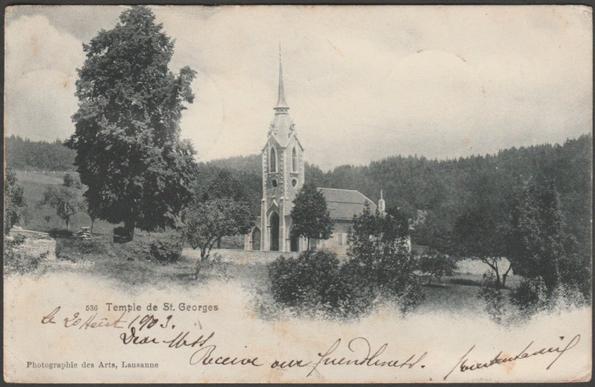 536 Temple de St. Georges
Le 20 Août 1903.
Dear Mrs
Receive our friendliness
Photographie des Arts, Lausanne